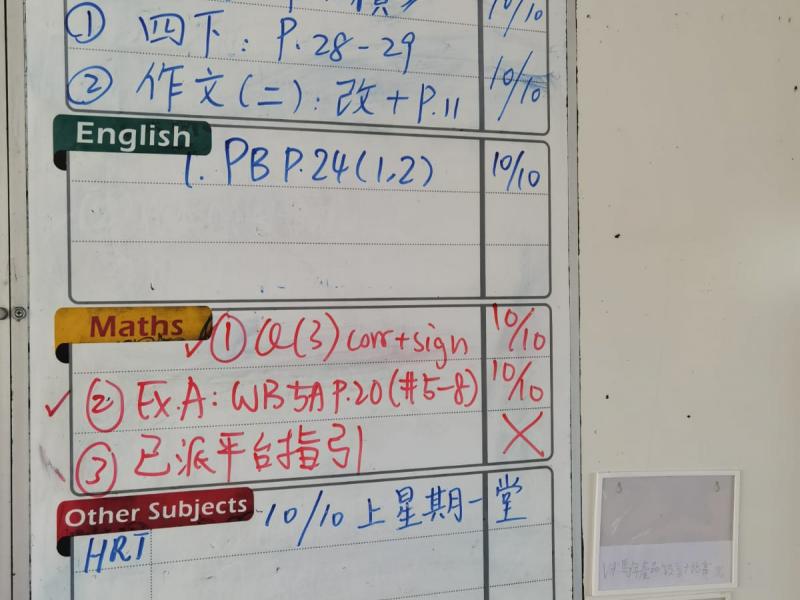 ① 四下: P.28-29 10/10
② 作文(二): 改+P.11 10/10
English
1. PB P.24(1,2) 10/10
Maths
✓ ① Q(3) corr+sign 10/10
✓ ② Ex.A: WB 5A P.20(#5-8) 10/10
③ 已派平台指引 X
Other Subjects
10/10 上星期一堂
HRT